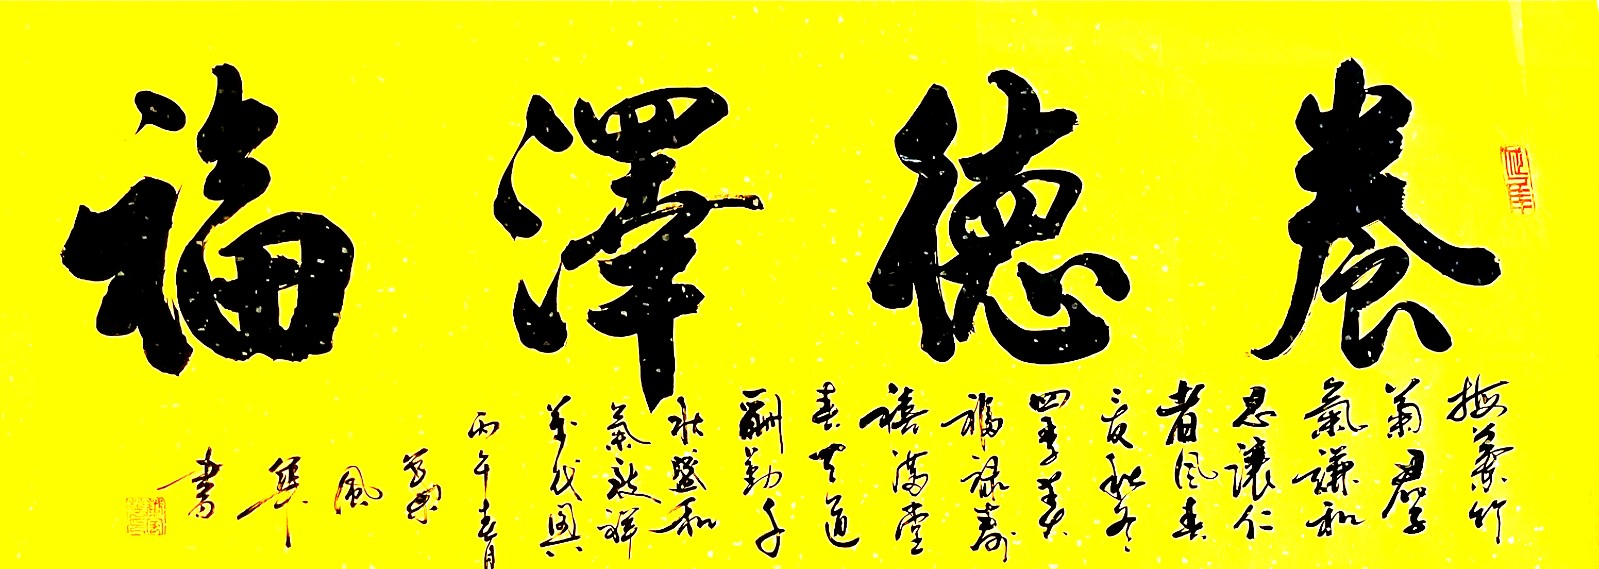 養德澤福
梅蘭竹
菊君子
氣謙和
忍讓仁
者風春
夏秋冬
四季美
福祿壽
禧滿堂
春天道
酬勤子
秋盛和
氣致祥
萬代興
丙午春月
風
隼
書